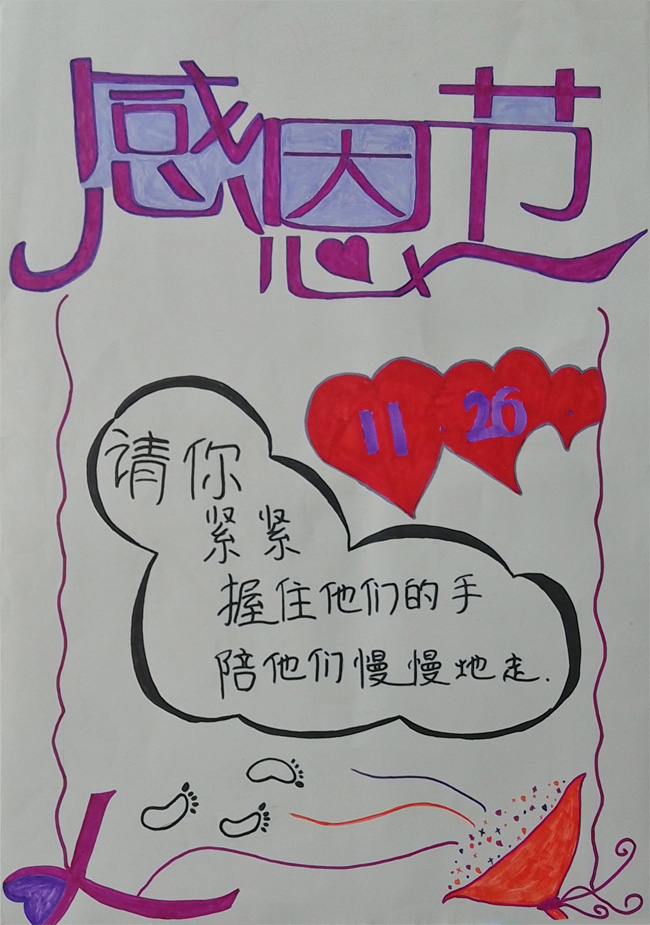 感恩节
11.26.
请你
紧紧
握住他们的手
陪他们慢慢地走.